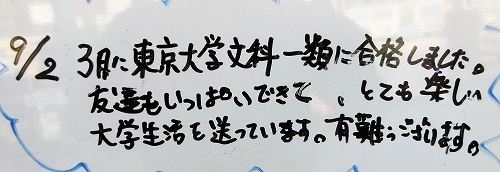 9/2 3月に東京大学文科一類に合格しました。
友達もいっぱいできて、とても楽しい
大学生活を送っています。有難うございます。